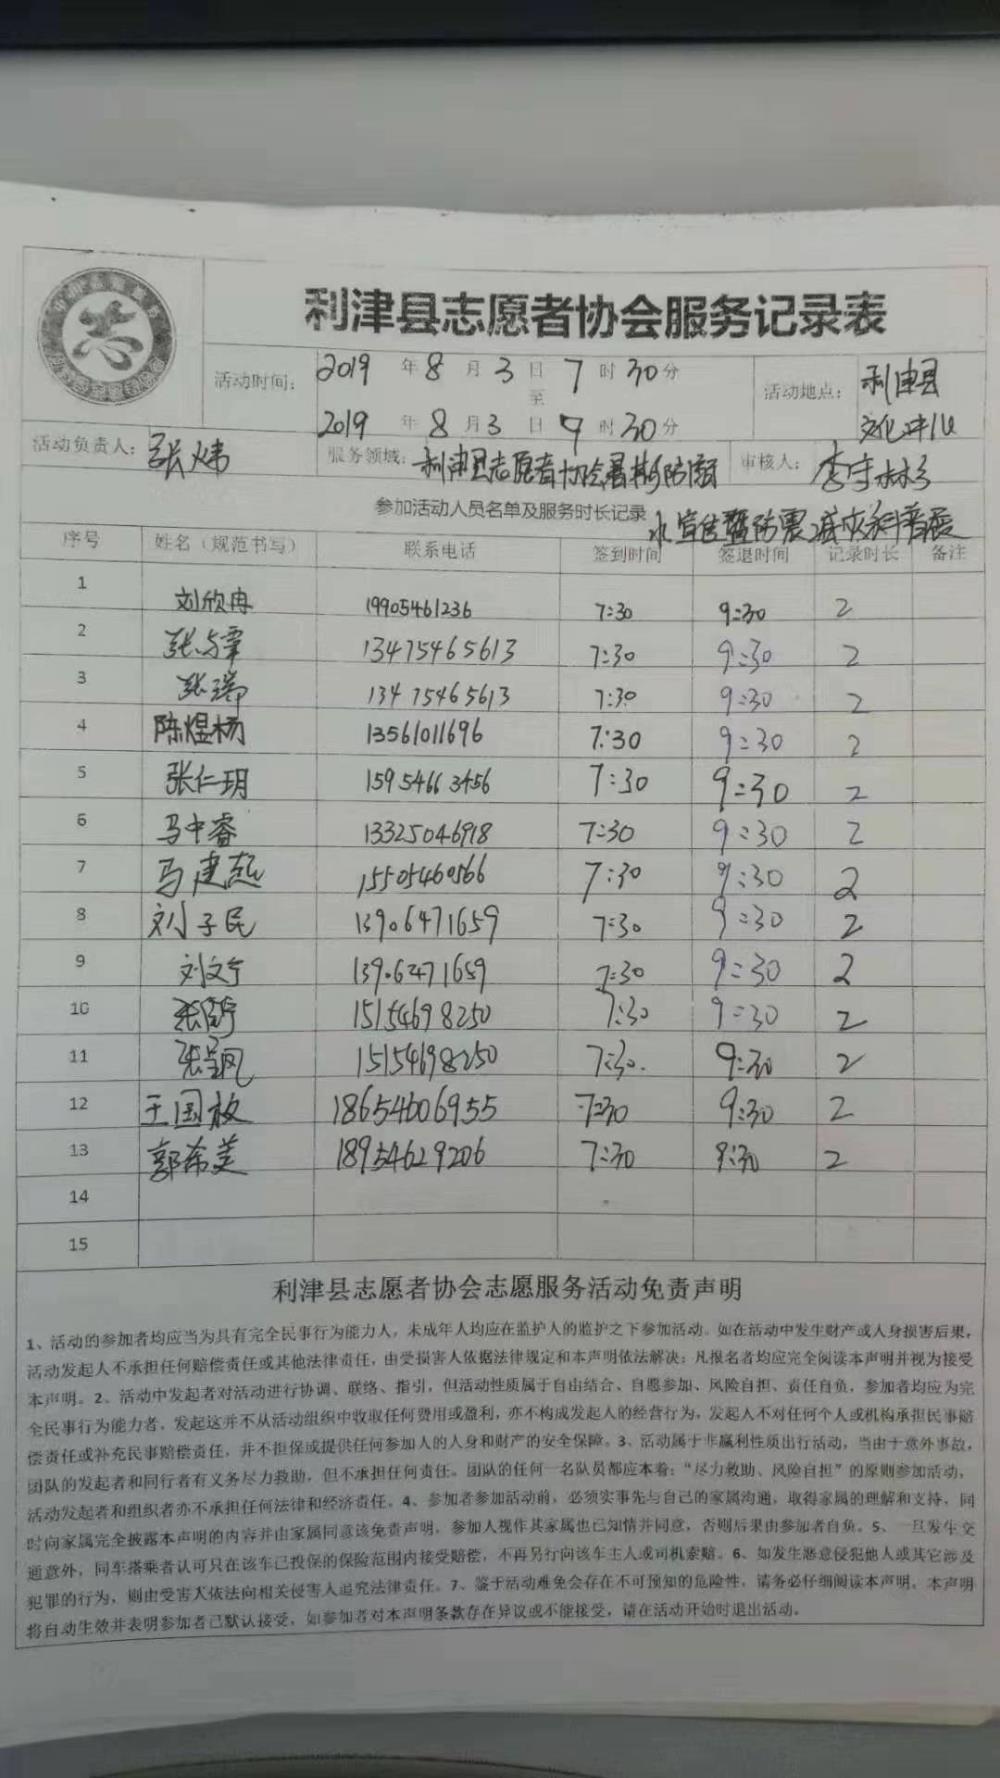 利津县志愿者协会服务记录表
活动时间: 2019 年 8 月 3 日 7 时 30 分
至
2019 年 8 月 3 日 9 时 30 分
活动地点: 利津县
文化中心
活动负责人: 张炜
服务领域: 利津县志愿者协会暑期防溺
审核人:
参加活动人员名单及服务时长记录
水宣传暨防震减灾科普展
序号 姓名（规范书写） 联系电话 签到时间 签退时间 记录时长 备注
1 刘欣冉 19905461236 7:30 9:30 2
2 13475465613 7:30 9:30 2
3 张瑞 13475465613 7:30 9:30 2
4 陈煜杨 13561011696 7:30 9:30 2
5 张仁玥 15954663456 7:30 9:30 2
6 马中睿 13325046918 7:30 9:30 2
7 马建燕 15505460566 7:30 9:30 2
8 刘子民 13906471659 7:30 9:30 2
9 刘文宁 13906471659 7:30 9:30 2
10 15154698250 7:30 9:30 2
11 15154698250 7:30 9:30 2
12 王国敏 18654606955 7:30 9:30 2
13 郭希美 18954629206 7:30 9:30 2
14
15
利津县志愿者协会志愿服务活动免责声明
1、活动的参加者均应当为具有完全民事行为能力人，未成年人均应在监护人的监护之下参加活动。如在活动中发生财产或人身损害后果，
活动发起人不承担任何赔偿责任或其他法律责任，由受损害人依据法律规定和本声明依法解决；凡报名者均应完全阅读本声明并视为接受
本声明。2、活动中发起者对活动进行协调、联络、指引，但活动性质属于自由结合、自愿参加、风险自担、责任自负，参加者均应为完
全民事行为能力者，发起这并不从活动组织中收取任何费用或盈利，亦不构成发起人的经营行为，发起人不对任何个人或机构承担民事赔
偿责任或补充民事赔偿责任，并不担保或提供任何参加人的人身和财产的安全保障。3、活动属于非赢利性质出行活动，当由于意外事故，
团队的发起者和同行者有义务尽力救助，但不承担任何责任。团队的任何一名队员都应本着：“尽力救助、风险自担”的原则参加活动，
活动发起者和组织者亦不承担任何法律和经济责任。4、参加者参加活动前，必须实事先与自己的家属沟通，取得家属的理解和支持，同
时向家属完全披露本声明的内容并由家属同意该免责声明，参加人视作其家属也已知情并同意，否则后果由参加者自负。5、一旦发生交
通意外，同车搭乘者认可只在该车已投保的保险范围内接受赔偿，不再另行向该车主人或司机索赔。6、如发生恶意侵犯他人或其它涉及
犯罪的行为，则由受害人依法向相关侵害人追究法律责任。7、鉴于活动难免会存在不可预知的危险性，请务必仔细阅读本声明。本声明
将自动生效并表明参加者已默认接受，如参加者对本声明条款存在异议或不能接受，请在活动开始时退出活动。